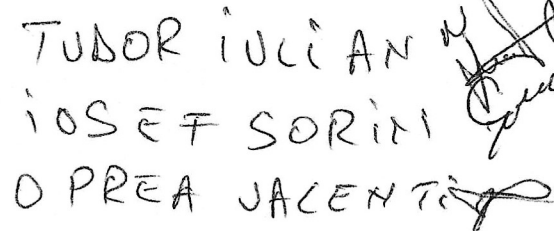 TUDOR iULiAN
iOSEF SORiN
OPREA VALENTiN